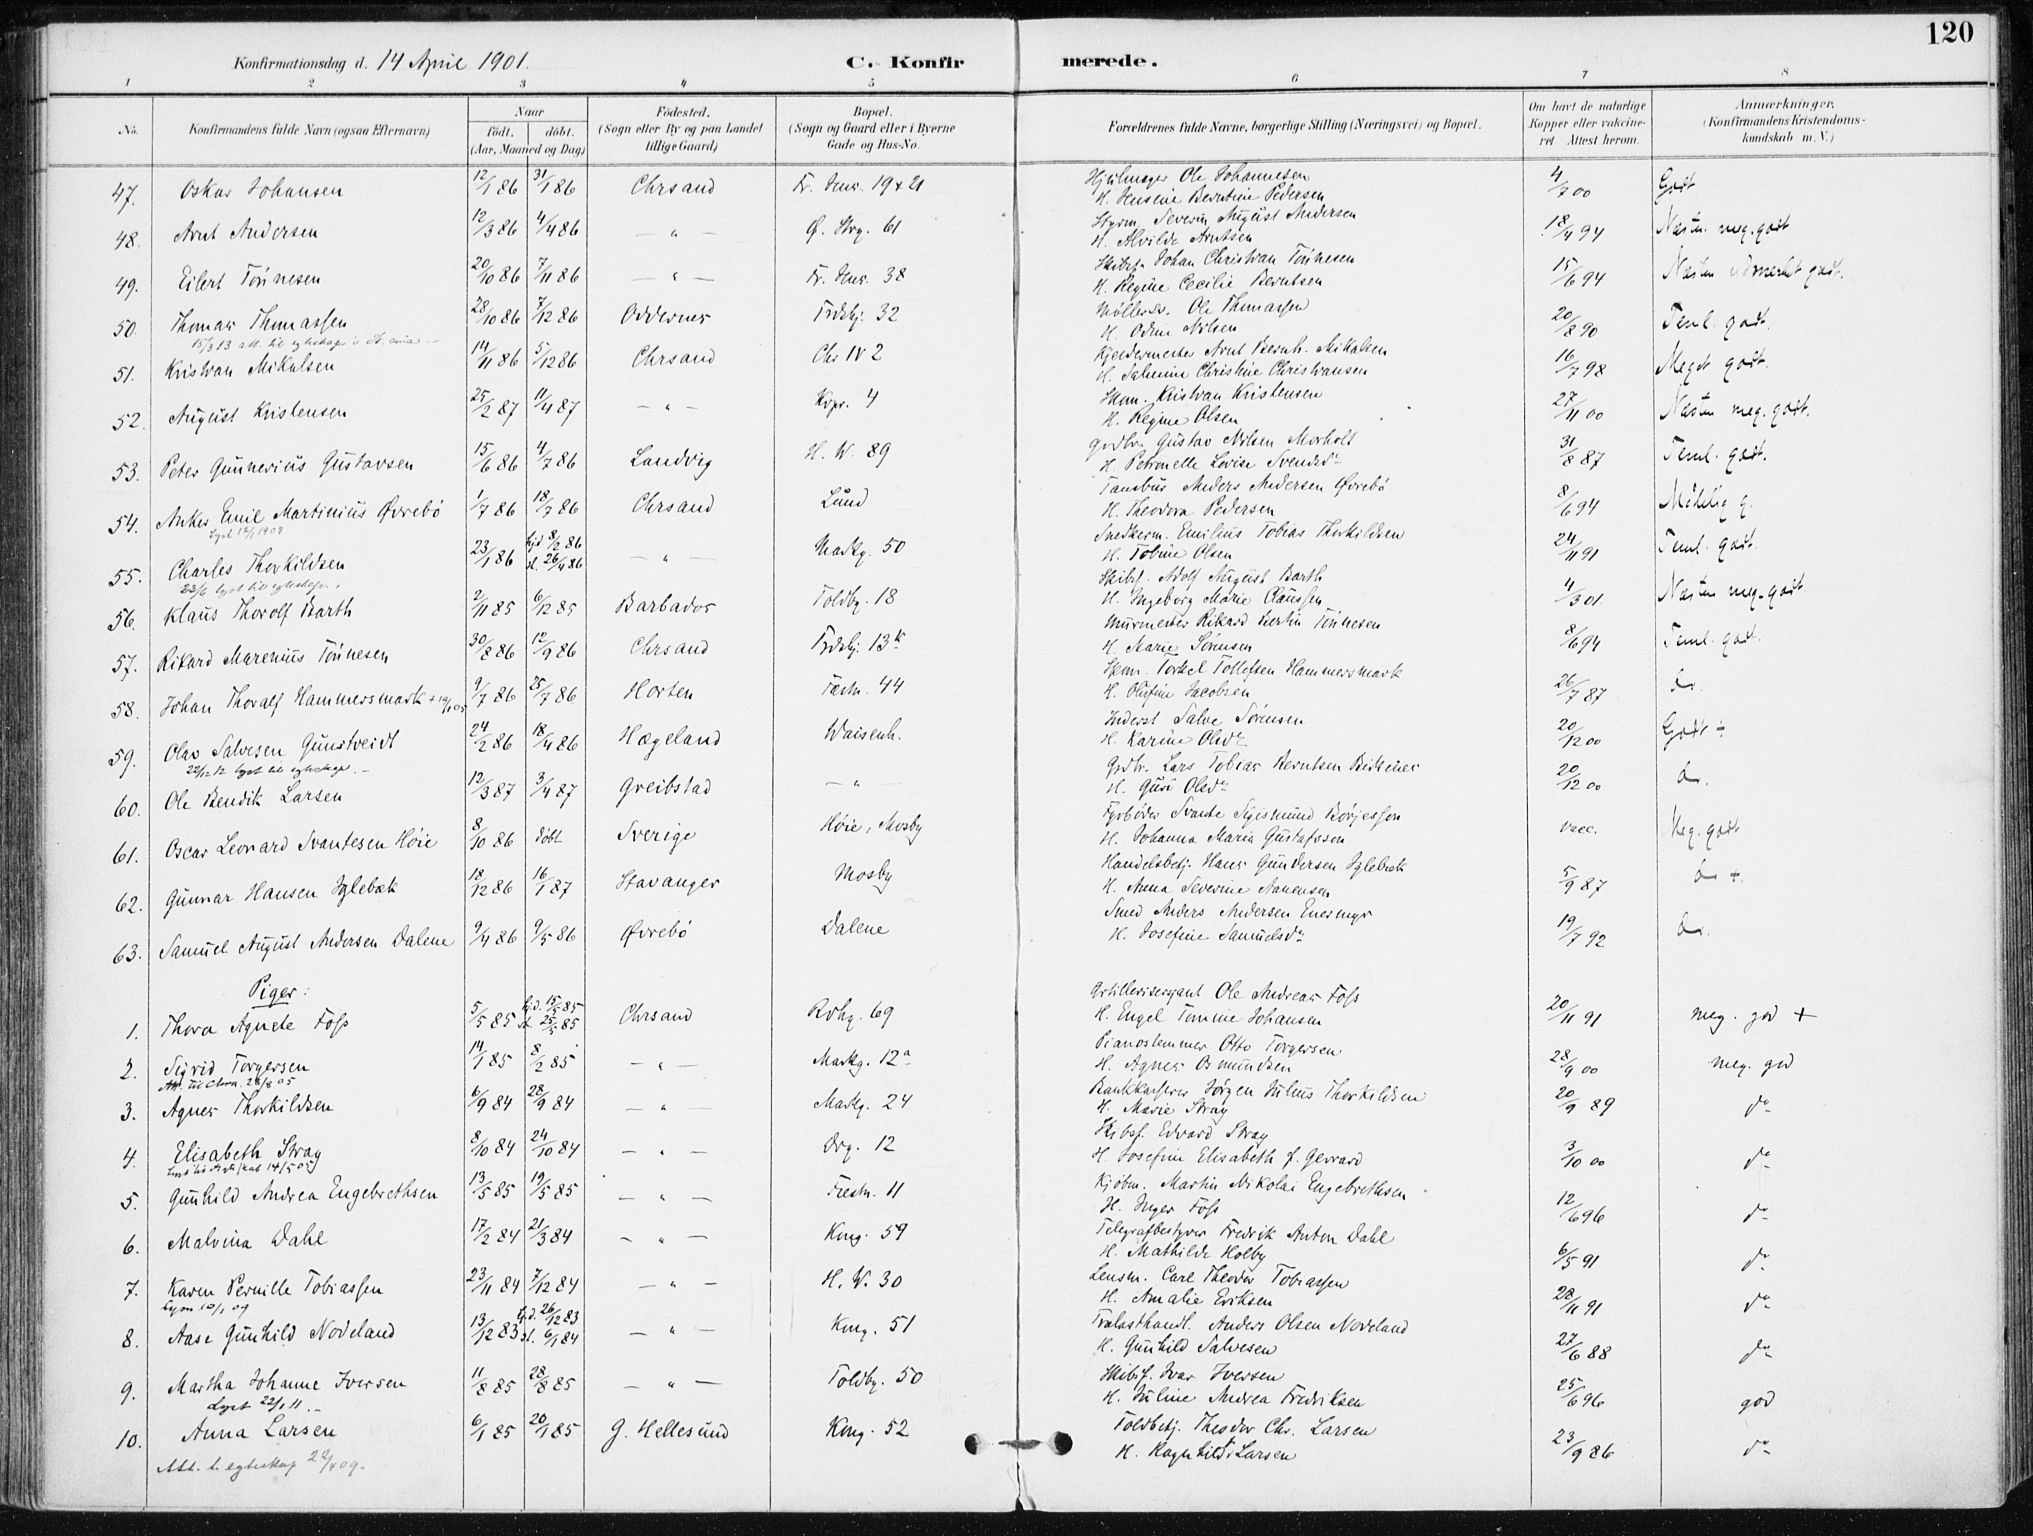 120
Konfirmationsdag d. 14 April 1901. C. Konfirmerede.
1 2 3 4 5 6 7 8
No. Konfirmandens fulde Navn (ogsaa Efternavn) Naar født. døbt. (Aar, Maaned og Dag) Fødested. (Sogn eller By og paa Landet tillige Gaard) Bopæl. (Sogn og Gaard eller i Byerne Gade og Hus-No. Forældrenes fulde Navne, borgerlige Stilling (Næringsvei) og Bopæl. Om havt de naturlige Kopper eller vakcineret Attest herom. Anmærkninger. (Konfirmandens Kristendomskundskab m. V.)
47. Oskar Johansen 12/1 86 31/1 86 Chrsand Fr. 19 & 21 Hjulmager Ole Johannesen 4/7 00 Godt
H. Jensine Berntine Pedersen
48. Arnt Andersen 12/3 86 4/4 86 — " — Ø. Strg. 61 Styrm. Severin August Andersen 18/4 94 Næsten meg. godt
H. Alvilde Arntsen
49. Eilert Tönnesen 20/10 86 7/11 86 — " — 38 Skibsf. Johan Christian Tönnesen 15/6 94 Næsten udmerket godt.
H. Regine Cecilie Berntsen
50. Thomas Thomassen 28/10 86 7/12 86 Oddernes Frdsbj. 32 Ole Thomassen 20/8 90 Teml. godt.
15/3 13 att. til egteskap H. Odine Nilsen
51. Kristian Mikalsen 14/11 86 5/12 86 Chrsand Chr IV 2 Kjeldermester Arnt Bernh. Mikalsen 16/7 98 Meget godt.
H. Salmine Christine Christiansen
52. August Kristensen 25/2 87 11/4 87 — " — Kvpr. 4 Skom. Kristian Kristensen 27/11 00 Næsten meg. godt.
H. Regine Olsen
53. Peter Gunnerius Gustavsen 15/6 86 4/7 86 Landvig H. W. 89 Grdbr. Gustav Nilsen Morholt 31/8 87 Teml. godt.
H. Petronelle Lovise Svendsdr
54. Ankes Emil Martinius Øvrebö 1/7 86 18/7 86 Chrsand Lund Anders Andersen Øvrebö 8/6 94 Måtelig g.
Lyst 12/1 1908 H. Theodora Pedersen
55. Charles Thorkildsen 23/1 86 hjd 8/2 86 st. 26/4 86 — " — Markg. 50 Snedkerm. Emilius Tobias Thorkildsen 24/11 91 Teml. godt.
22/6 lyst til egteskap. H. Tobine Olsen
56. Klaus Thorolf Barth 2/11 85 6/12 85 Barbados Toldbg. 18 Skibsf. Adolf August Barth 4/3 01 Næsten meg. godt
H. Ingeborg Marie Claussen
57. Rikard Marenius Tönnesen 30/8 86 12/9 86 Chrsand Frdsbj. 13 Murmester Rikard Martin Tönnesen 8/6 94 Teml. godt.
H. Marie Sörensen
58. Johan Thoralf Hammersmark 9/7 86 25/7 86 Horten Fæstn. 44 Skom. Torkel Tollefsen Hammersmark 26/7 87 do.
H. Olufine Jacobsen
59. Olav Salvesen Gunstveidt 24/2 86 18/4 86 Hægeland Waisenh. Inderst Salve Sörensen 20/12 00 Godt +
22/12 12 lyst til egteskap. — H. Karine Olsdr
60. Ole Bendik Larsen 12/3 87 3/4 87 Greibstad — " — Grdbr. Lars Tobias Berntsen Birkenes 20/12 00 do.
H. Guri Olsdr
61. Oscar Leonard Svantesen Höie 8/10 86 döbt Sverige Höie, Mosby Fyrböder Svante Sigismund Börjesson vacc. Meg. godt
H. Johanna Maria Gustafsson
62. Gunnar Hansen Iglebæk 18/12 86 16/1 87 Stavanger Mosby Handelsbetj. Hans Gundersen Iglebæk 5/9 87 do +.
H. Anna Severine Aanensen
63. Samuel August Andersen Dalene 9/4 86 9/5 86 Øvrebö Dalene Smed Anders Andersen Enermyr 19/7 92 do.
H. Josefine Samuelsdr
Piger:
1. Thora Agnete Foss 5/5 85 hjd. 15/5 85 st. 25/5 85 Chrsand Rdhg. 69 Artillerisergant Ole Andreas Foss 20/11 91 meg. god +
H. Engel Tomine Johansen
2. Sigrid Torgersen 14/1 85 8/2 85 — " — Markg. 12a Pianostemmer Otto Torgersen 28/9 00 meg. god
Att. til Chra. 28/8 05 H. Agnes Osmundsen
3. Agnes Thorkildsen 6/9 84 28/9 84 — " — Markg. 24 Bankkasserer Jörgen Julius Thorkildsen 20/9 89 do
H. Marie Stray
4. Elisabeth Stray 8/10 84 24/10 84 — " — Drg. 12 Skibsf. Edvard Stray 3/10 00 do
14/5 05 H. Josefine Elisabeth f. Gerrard
5. Gunhild Andrea Engebrethsen 13/5 85 19/5 85 — " — Fæstn. 11 Kjöbm. Martin Nikolai Engebrethsen 12/6 96 do
H. Inger Foss
6. Malvina Dahl 17/2 84 21/3 84 — " — Kong. 59 Telegrafbestyrer Fredrik Anton Dahl 6/5 91 do
H. Mathilde Holby
7. Karen Pernille Tobiassen 23/11 84 7/12 84 — " — H. W. 30 Lensm. Carl Theodor Tobiassen 28/11 91 do
Lyst 10/1 09 H. Amalie Eriksen
8. Aase Gunhild Nodeland 13/12 83 hjd. 26/12 83 st. 6/1 84 — " — Kong. 51 Trælasthandl. Anders Olsen Nodeland 27/6 88 do
H. Gunhild Salvesen
9. Martha Johanne Iversen 11/8 85 28/8 85 — " — Toldbg. 50 Skibsf. Ivar Iversen 25/6 96 god
Lyst 22/1 11. — H. Juline Andrea Fredriksen
10. Anna Larsen 6/1 85 20/1 85 G. Hellesund Kong. 52 Toldbetj. Theodor Chr. Larsen 23/9 86 do
Att. t. egteskap 22/4 09. H. Ragnhild Larsen